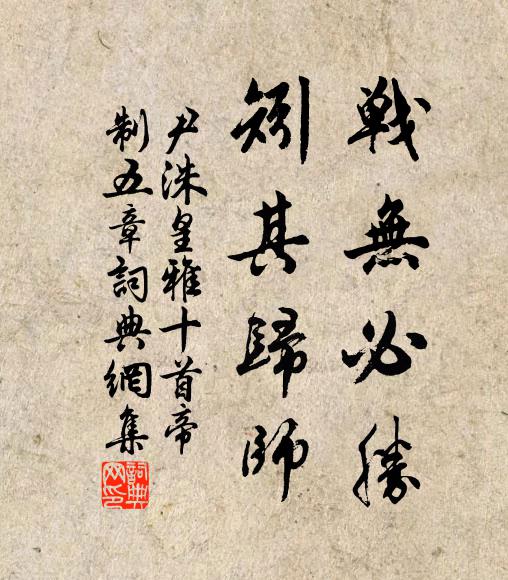 戦無必勝
矧其歸師
尹洙皇雅十首帝
制五章詞典網集
詞典網印